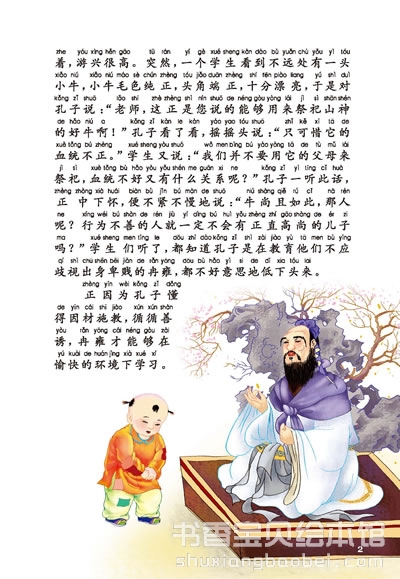 zhe yóu xìng hěn gāo tū rán yí gè xué sheng kàn dào bù yuǎn chù yǒu yì tóu
着，游兴很高。突然，一个学生看到不远处有一头
xiǎo niú xiǎo niú máo sè chún zhèng tóu jiǎo duān zhèng shí fēn piào liang yú shì duì
小牛，小牛毛色纯正，头角端正，十分漂亮，于是对
kǒng zǐ shuō lǎo shī zhè zhèng shì nín shuō de néng gòu yòng lái jì sì shān shén
孔子说：“老师，这正是您说的能够用来祭祀山神
de hǎo niú a kǒng zǐ kàn le kàn yáo yao tóu shuō zhǐ kě xī tā de
的好牛啊！”孔子看了看，摇摇头说：“只可惜它的
xuè tǒng bú zhèng xué sheng yòu shuō wǒ men bìng bú yào yòng tā de fù mǔ lái
血统不正。”学生又说：“我们并不要用它的父母来
jì sì xuè tǒng bù hǎo yòu yǒu shén me guān xi ne kǒng zǐ yì tīng cǐ huà
祭祀，血统不好又有什么关系呢？”孔子一听此话，
zhèng zhòng xià huái biàn bù jǐn bú màn de shuō niú shàng qiě rú cǐ nà rén
正中下怀，便不紧不慢地说：“牛尚且如此，那人
ne xíng wéi bú shàn de rén jiù yí dìng bú huì yǒu zhèng zhí gāo shàng de ér zi
呢？行为不善的人就一定不会有正直高尚的儿子
ma xué sheng men tīng le dōu zhī dào kǒng zǐ shì zài jiào yù tā men bù yīng
吗？”学生们听了，都知道孔子是在教育他们不应
qí shì chū shēn bēi jiàn de rǎn yōng dōu bù hǎo yì si de dī xià tóu lái
歧视出身卑贱的冉雍，都不好意思地低下头来。
zhèng yīn wèi kǒng zǐ dǒng
正因为孔子懂
dé yīn cái shī jiào xún xún shàn
得因材施教，循循善
yòu rǎn yōng cái néng gòu zài
诱，冉雍才能够在
yú kuài de huán jìng xià xué xí
愉快的环境下学习。
书香宝贝绘本馆
shuxiangbaobei.com
2